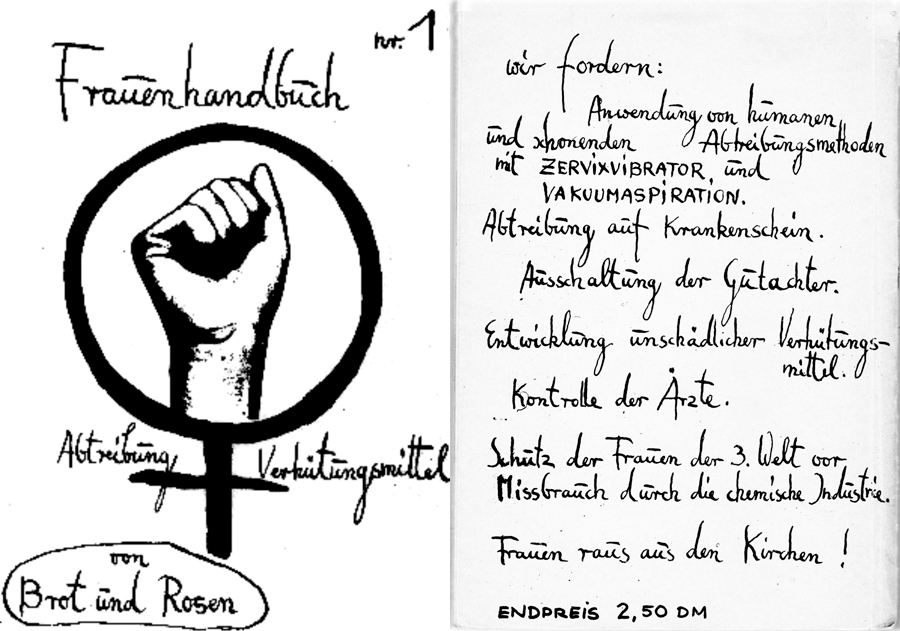 nr. 1
Frauenhandbuch
Abtreibung Verhütungsmittel
von
Brot und Rosen
wir fordern:
Anwendung von humanen
und schonenden Abtreibungsmethoden
mit ZERVIXVIBRATOR, und
VAKUUMASPIRATION.
Abtreibung auf Krankenschein.
Ausschaltung der Gutachter.
Entwicklung unschädlicher Verhütungs-
mittel.
Kontrolle der Ärzte.
Schutz der Frauen der 3. Welt vor
Missbrauch durch die chemische Industrie.
Frauen raus aus den Kirchen!
ENDPREIS 2,50 DM